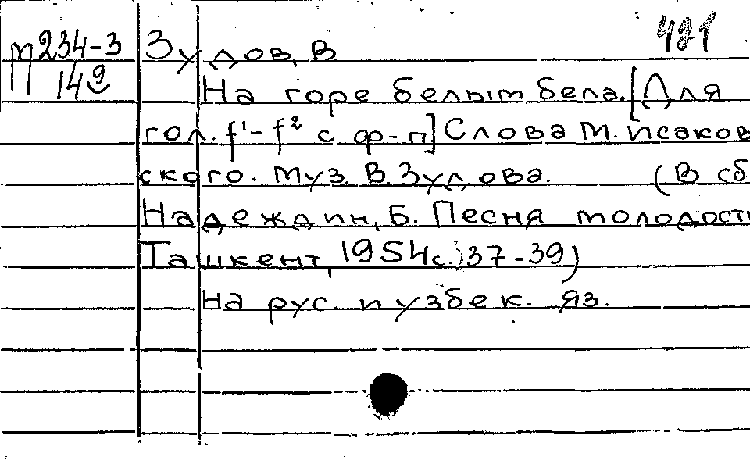 П234-3 Зудов, В 421
149
На горе белым бела. [Для
гол. f¹-f² с ф-п] Слова М. Исаков
ского. Муз. В. Зудова. (В сб
Надеждин, Б. Песня молодост
Ташкент, 1954 с. 37-39)
На рус. и узбек. яз.